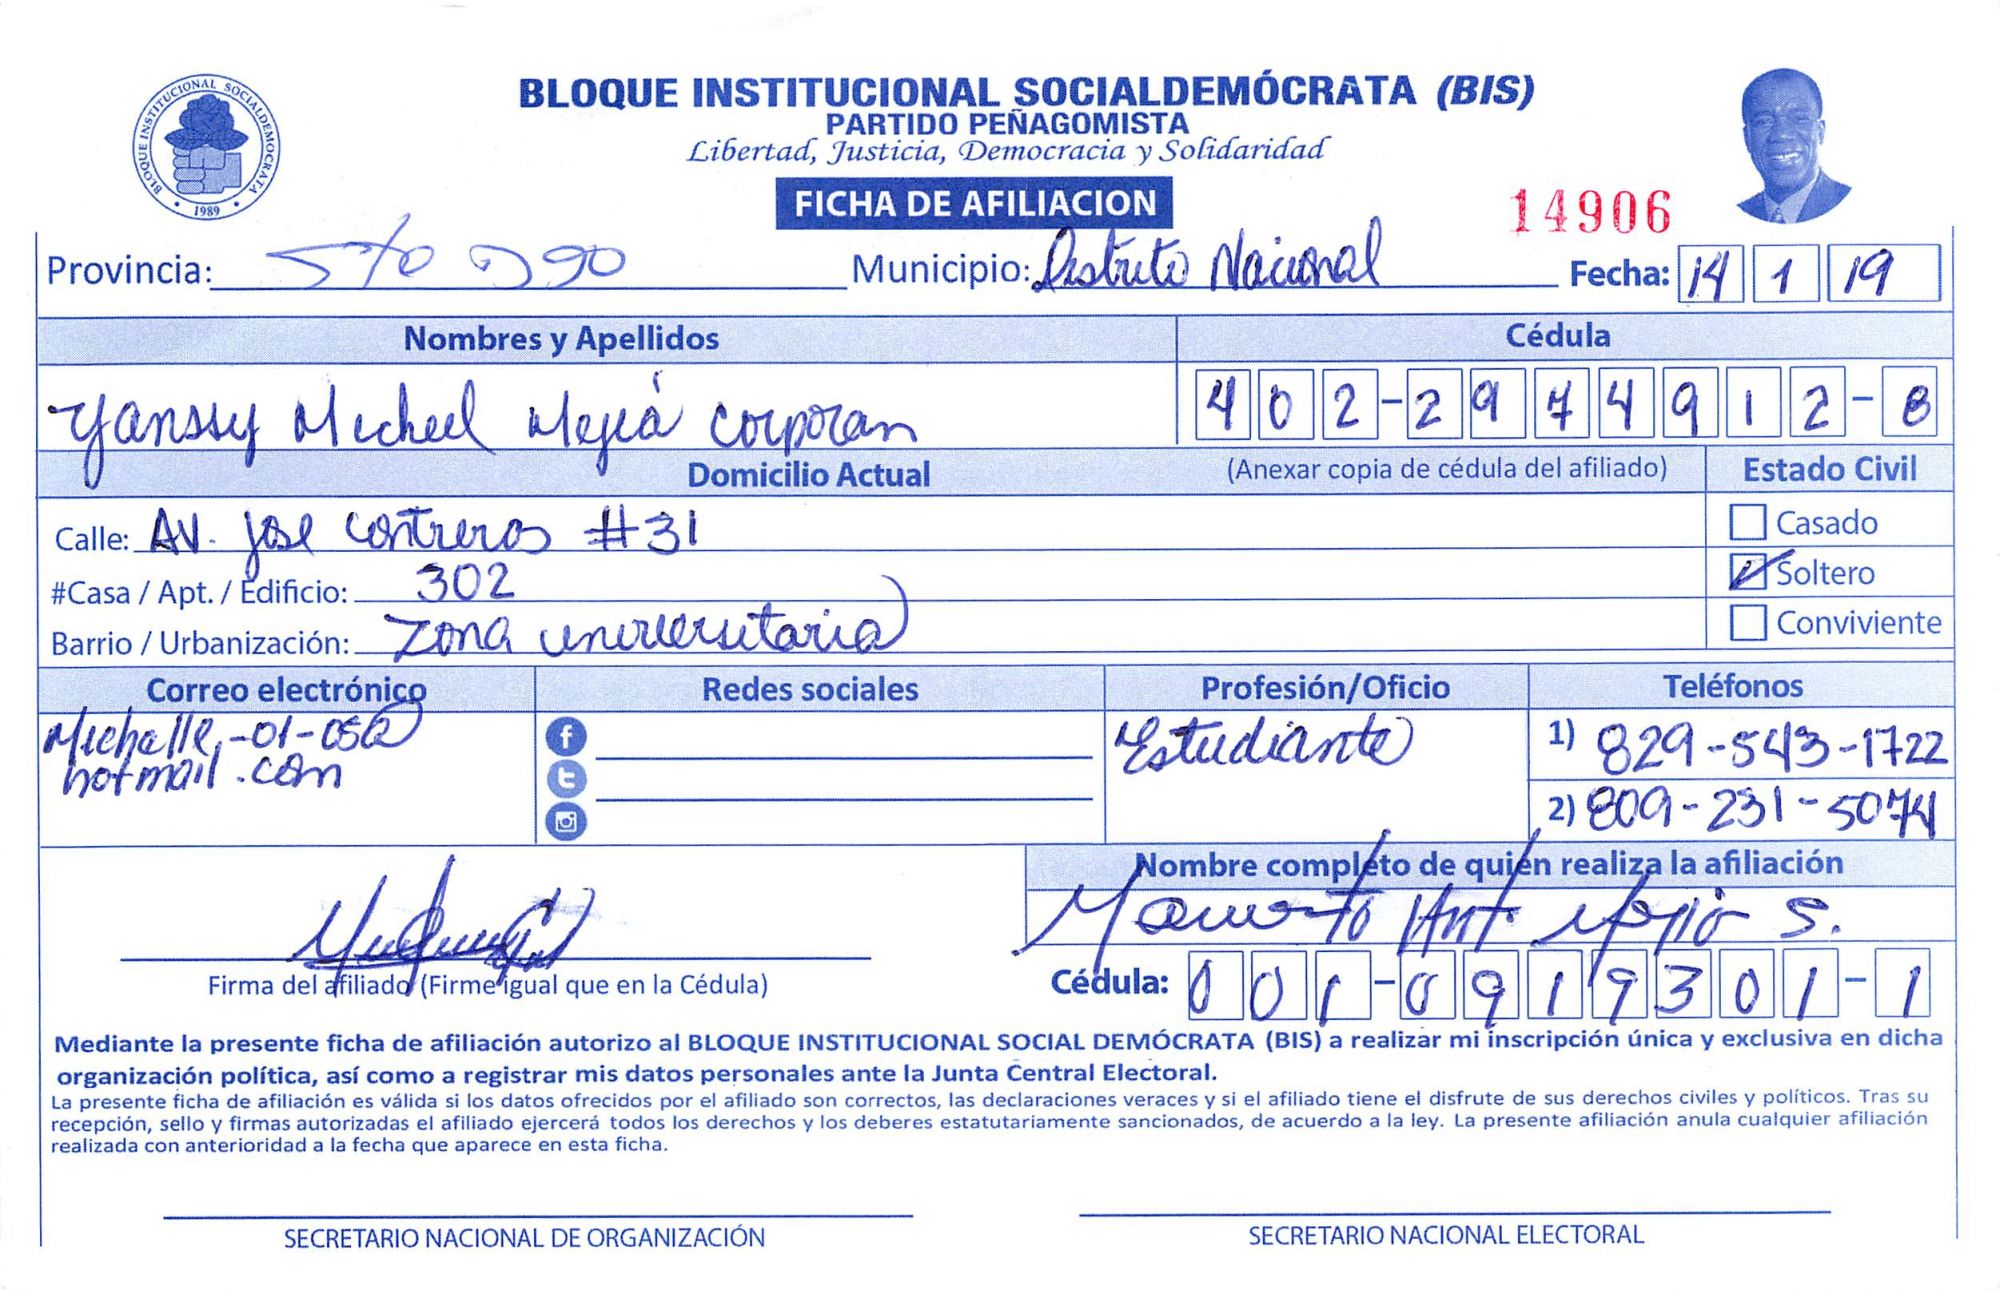 BLOQUE INSTITUCIONAL SOCIALDEMÓCRATA (BIS)
PARTIDO PEÑAGOMISTA
Libertad, Justicia, Democracia y Solidaridad
BLOQUE INSTITUCIONAL SOCIALDEMOCRATA
• 1989 •
FICHA DE AFILIACION
14906
Provincia: Sto Dgo Municipio: Distrito Nacional Fecha: 14 1 19
Nombres y Apellidos Cédula
Yanssy Micheel Mejiá Corporan 402-2974912-8
Domicilio Actual (Anexar copia de cédula del afiliado) Estado Civil
Calle: AV. Jose Contreras #31 Casado
#Casa / Apt. / Edificio: 302 Soltero
Barrio / Urbanización: Zona universitaria Conviviente
Correo electrónico Redes sociales Profesión/Oficio Teléfonos
Michelle-01-05@ Estudiante 1) 829-543-1722
hotmail.com 2) 809-231-5074
Nombre completo de quien realiza la afiliación
Ant. Mejia S.
Firma del afiliado (Firme igual que en la Cédula) Cédula: 001-0919301-1
Mediante la presente ficha de afiliación autorizo al BLOQUE INSTITUCIONAL SOCIAL DEMÓCRATA (BIS) a realizar mi inscripción única y exclusiva en dicha
organización política, así como a registrar mis datos personales ante la Junta Central Electoral.
La presente ficha de afiliación es válida si los datos ofrecidos por el afiliado son correctos, las declaraciones veraces y si el afiliado tiene el disfrute de sus derechos civiles y políticos. Tras su
recepción, sello y firmas autorizadas el afiliado ejercerá todos los derechos y los deberes estatutariamente sancionados, de acuerdo a la ley. La presente afiliación anula cualquier afiliación
realizada con anterioridad a la fecha que aparece en esta ficha.
SECRETARIO NACIONAL DE ORGANIZACIÓN SECRETARIO NACIONAL ELECTORAL